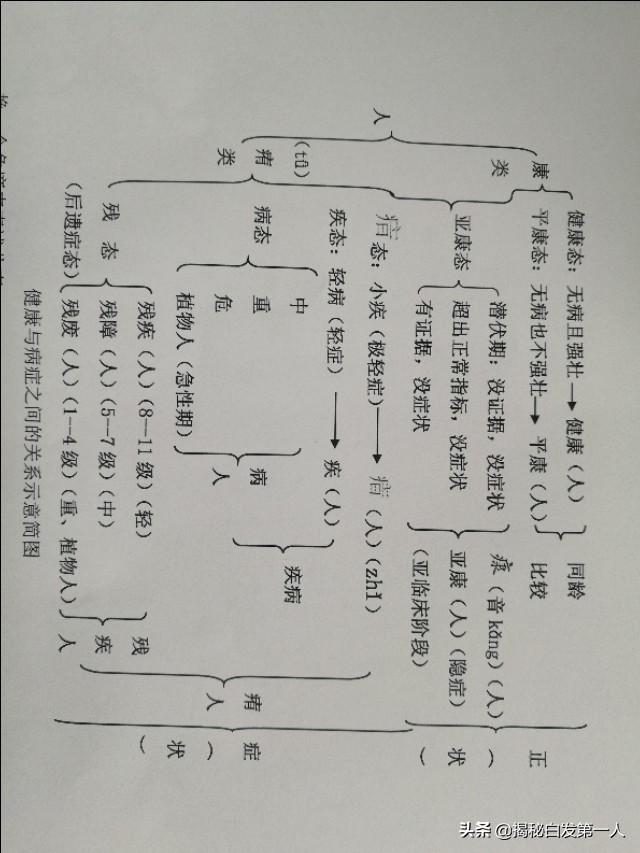 人
康类
健康态：无病且强壮→健康（人）
平康态：无病也不强壮→平康（人）
同龄比较
亚康态
潜伏期：没证据，没症状
超出正常指标，没症状
有证据，没症状
（音kāng）（人）
亚康（人）（隐症）
（亚临床阶段）
正（状）
（tū）
瘏类
态：小疾（极轻症）→（人）（zhǐ）
疾态：轻病（轻症）→疾（人）
病态
中
重
危
植物人（急性期）
病人
疾病
残态
（后遗症态）
残疾（人）（8—11级）（轻）
残障（人）（5—7级）（中）
残废（人）（1—4级）（重、植物人）
残疾人
瘏人
症（状）
健康与病症之间的关系示意简图
头条 @揭秘白发第一人